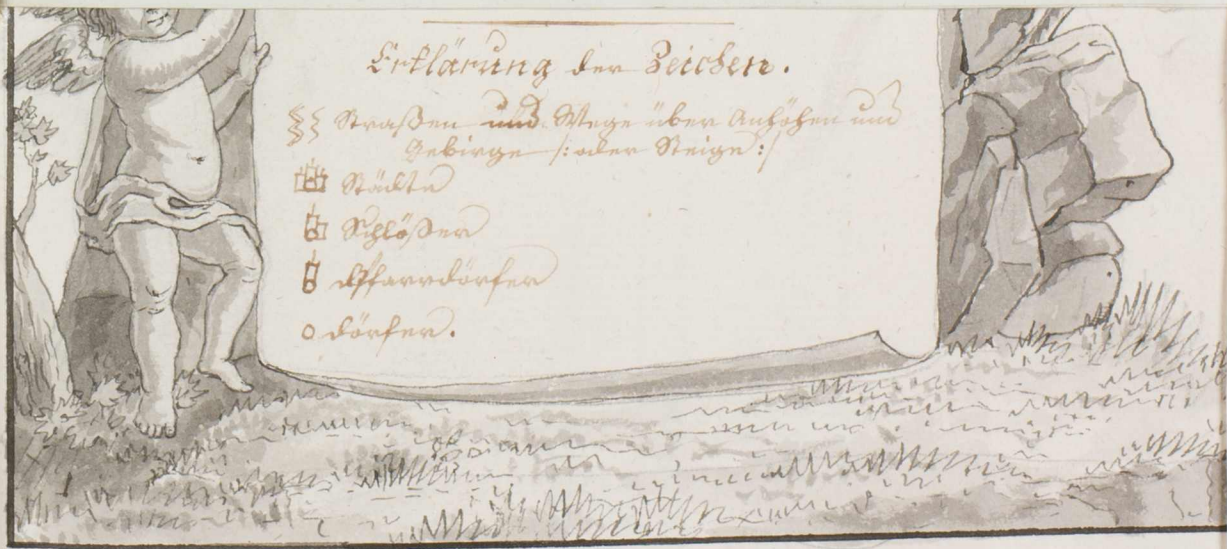 Erklärung der Zeichen.
Straßen und Wege über Anhöhen und
Gebirge /: oder Steige :/
Städte
Schlößer
Pfarrdörfer
dörfer.